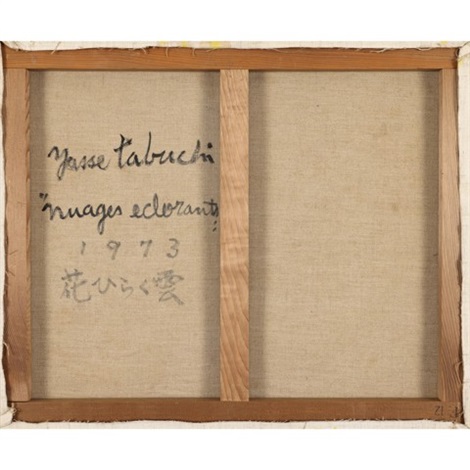 Yasse tabuchi
"nuages eclorants"
1973
花ひらく雲